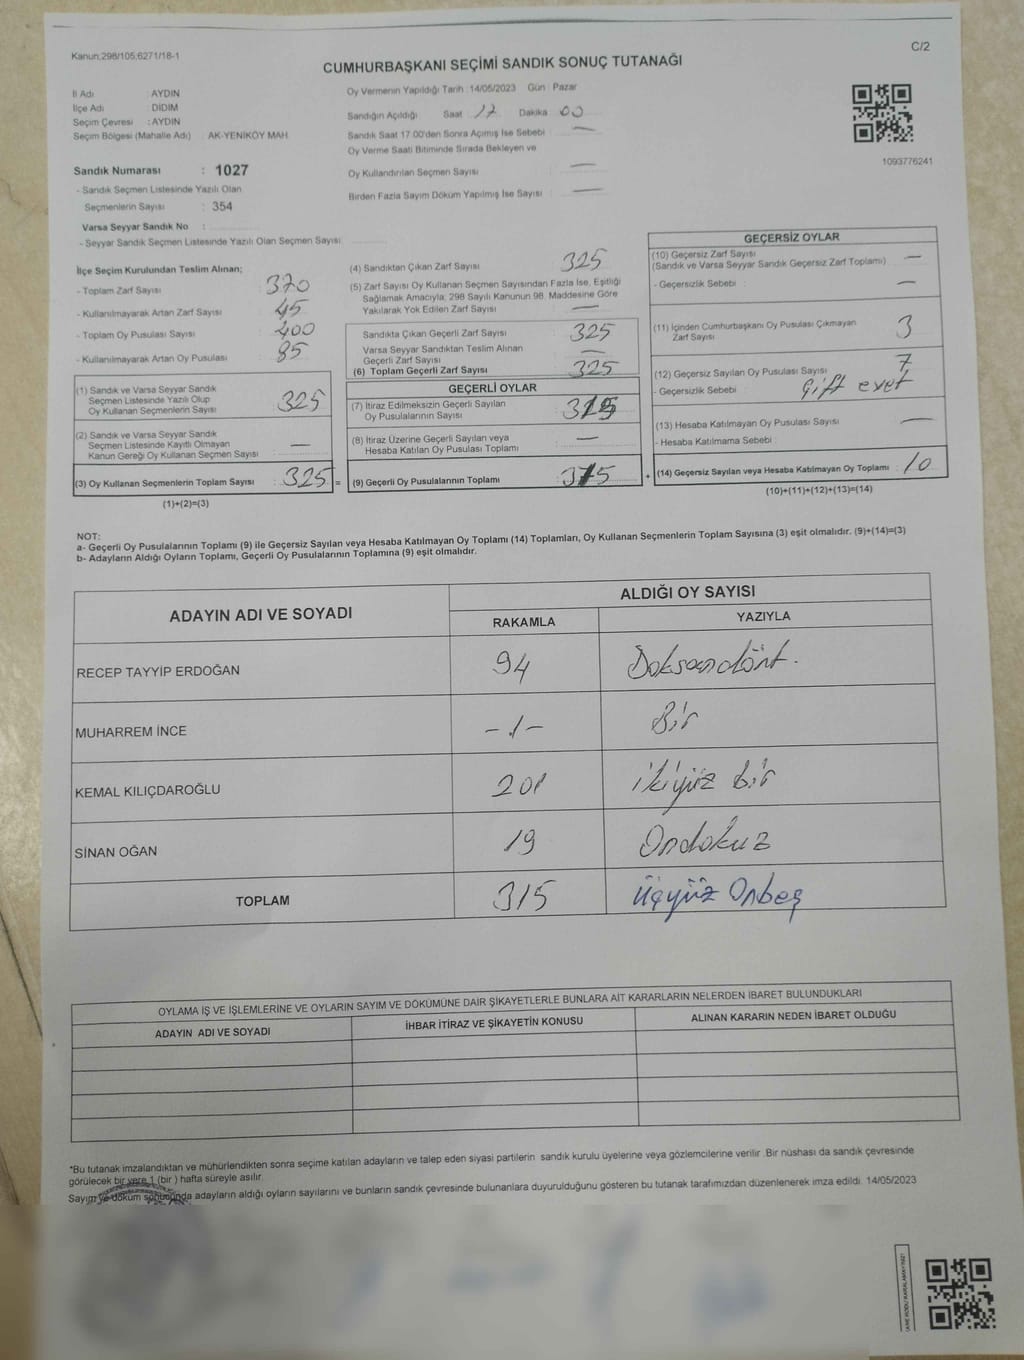 Kanun:298/105,6271/18-1
C/2
CUMHURBAŞKANI SEÇİMİ SANDIK SONUÇ TUTANAĞI
İl Adı : AYDIN
İlçe Adı : DİDİM
Seçim Çevresi : AYDIN
Seçim Bölgesi (Mahalle Adı) : AK-YENİKÖY MAH.
Sandık Numarası : 1027
- Sandık Seçmen Listesinde Yazılı Olan
Seçmenlerin Sayısı : 354
Varsa Seyyar Sandık No :
- Seyyar Sandık Seçmen Listesinde Yazılı Olan Seçmen Sayısı
Oy Vermenin Yapıldığı Tarih : 14/05/2023 Gün : Pazar
Sandığın Açıldığı Saat 17 Dakika 00
Sandık Saat 17.00'den Sonra Açılmış İse Sebebi : —
Oy Verme Saati Bitiminde Sırada Bekleyen ve
Oy Kullandırılan Seçmen Sayısı : —
Birden Fazla Sayım Döküm Yapılmış İse Sayısı : —
1093776241
İlçe Seçim Kurulundan Teslim Alınan;
- Toplam Zarf Sayısı : 370
- Kullanılmayarak Artan Zarf Sayısı : 45
- Toplam Oy Pusulası Sayısı : 400
- Kullanılmayarak Artan Oy Pusulası : 85
(1) Sandık ve Varsa Seyyar Sandık
Seçmen Listesinde Yazılı Olup
Oy Kullanan Seçmenlerin Sayısı : 325
(2) Sandık ve Varsa Seyyar Sandık
Seçmen Listesinde Kayıtlı Olmayan
Kanun Gereği Oy Kullanan Seçmen Sayısı : —
(3) Oy Kullanan Seçmenlerin Toplam Sayısı : 325 =
(1)+(2)=(3)
(4) Sandıktan Çıkan Zarf Sayısı : 325
(5) Zarf Sayısı Oy Kullanan Seçmen Sayısından Fazla İse, Eşitliği
Sağlamak Amacıyla; 298 Sayılı Kanunun 98. Maddesine Göre
Yakılarak Yok Edilen Zarf Sayısı : —
Sandıkta Çıkan Geçerli Zarf Sayısı : 325
Varsa Seyyar Sandıktan Teslim Alınan
Geçerli Zarf Sayısı : —
(6) Toplam Geçerli Zarf Sayısı : 325
GEÇERLİ OYLAR
(7) İtiraz Edilmeksizin Geçerli Sayılan
Oy Pusulalarının Sayısı : 315
(8) İtiraz Üzerine Geçerli Sayılan veya
Hesaba Katılan Oy Pusulası Toplamı : —
(9) Geçerli Oy Pusulalarının Toplamı : 315 +
GEÇERSİZ OYLAR
(10) Geçersiz Zarf Sayısı : —
(Sandık ve Varsa Seyyar Sandık Geçersiz Zarf Toplamı)
- Geçersizlik Sebebi : —
(11) İçinden Cumhurbaşkanı Oy Pusulası Çıkmayan
Zarf Sayısı : 3
(12) Geçersiz Sayılan Oy Pusulası Sayısı : 7
- Geçersizlik Sebebi : Çift evet
(13) Hesaba Katılmayan Oy Pusulası Sayısı : —
- Hesaba Katılmama Sebebi :
(14) Geçersiz Sayılan veya Hesaba Katılmayan Oy Toplamı : 10
(10)+(11)+(12)+(13)=(14)
NOT:
a- Geçerli Oy Pusulalarının Toplamı (9) ile Geçersiz Sayılan veya Hesaba Katılmayan Oy Toplamı (14) Toplamları, Oy Kullanan Seçmenlerin Toplam Sayısına (3) eşit olmalıdır. (9)+(14)=(3)
b- Adayların Aldığı Oyların Toplamı, Geçerli Oy Pusulalarının Toplamına (9) eşit olmalıdır.
ADAYIN ADI VE SOYADI
ALDIĞI OY SAYISI
RAKAMLA YAZIYLA
RECEP TAYYİP ERDOĞAN 94 Doksandört.
MUHARREM İNCE -1- Bir
KEMAL KILIÇDAROĞLU 201 ikiyüz bir
SİNAN OĞAN 19 Ondokuz
TOPLAM 315 Üçyüz Onbeş
OYLAMA İŞ VE İŞLEMLERİNE VE OYLARIN SAYIM VE DÖKÜMÜNE DAİR ŞİKAYETLERLE BUNLARA AİT KARARLARIN NELERDEN İBARET BULUNDUKLARI
ADAYIN ADI VE SOYADI İHBAR İTİRAZ VE ŞİKAYETİN KONUSU ALINAN KARARIN NEDEN İBARET OLDUĞU
*Bu tutanak imzalandıktan ve mühürlendikten sonra seçime katılan adayların ve talep eden siyasi partilerin sandık kurulu üyelerine veya gözlemcilerine verilir. Bir nüshası da sandık çevresinde
görülecek bir yere 1 (bir ) hafta süreyle asılır.
Sayım ve döküm sonucunda adayların aldığı oyların sayılarını ve bunların sandık çevresinde bulunanlara duyurulduğunu gösteren bu tutanak tarafımızdan düzenlenerek imza edildi. 14/05/2023